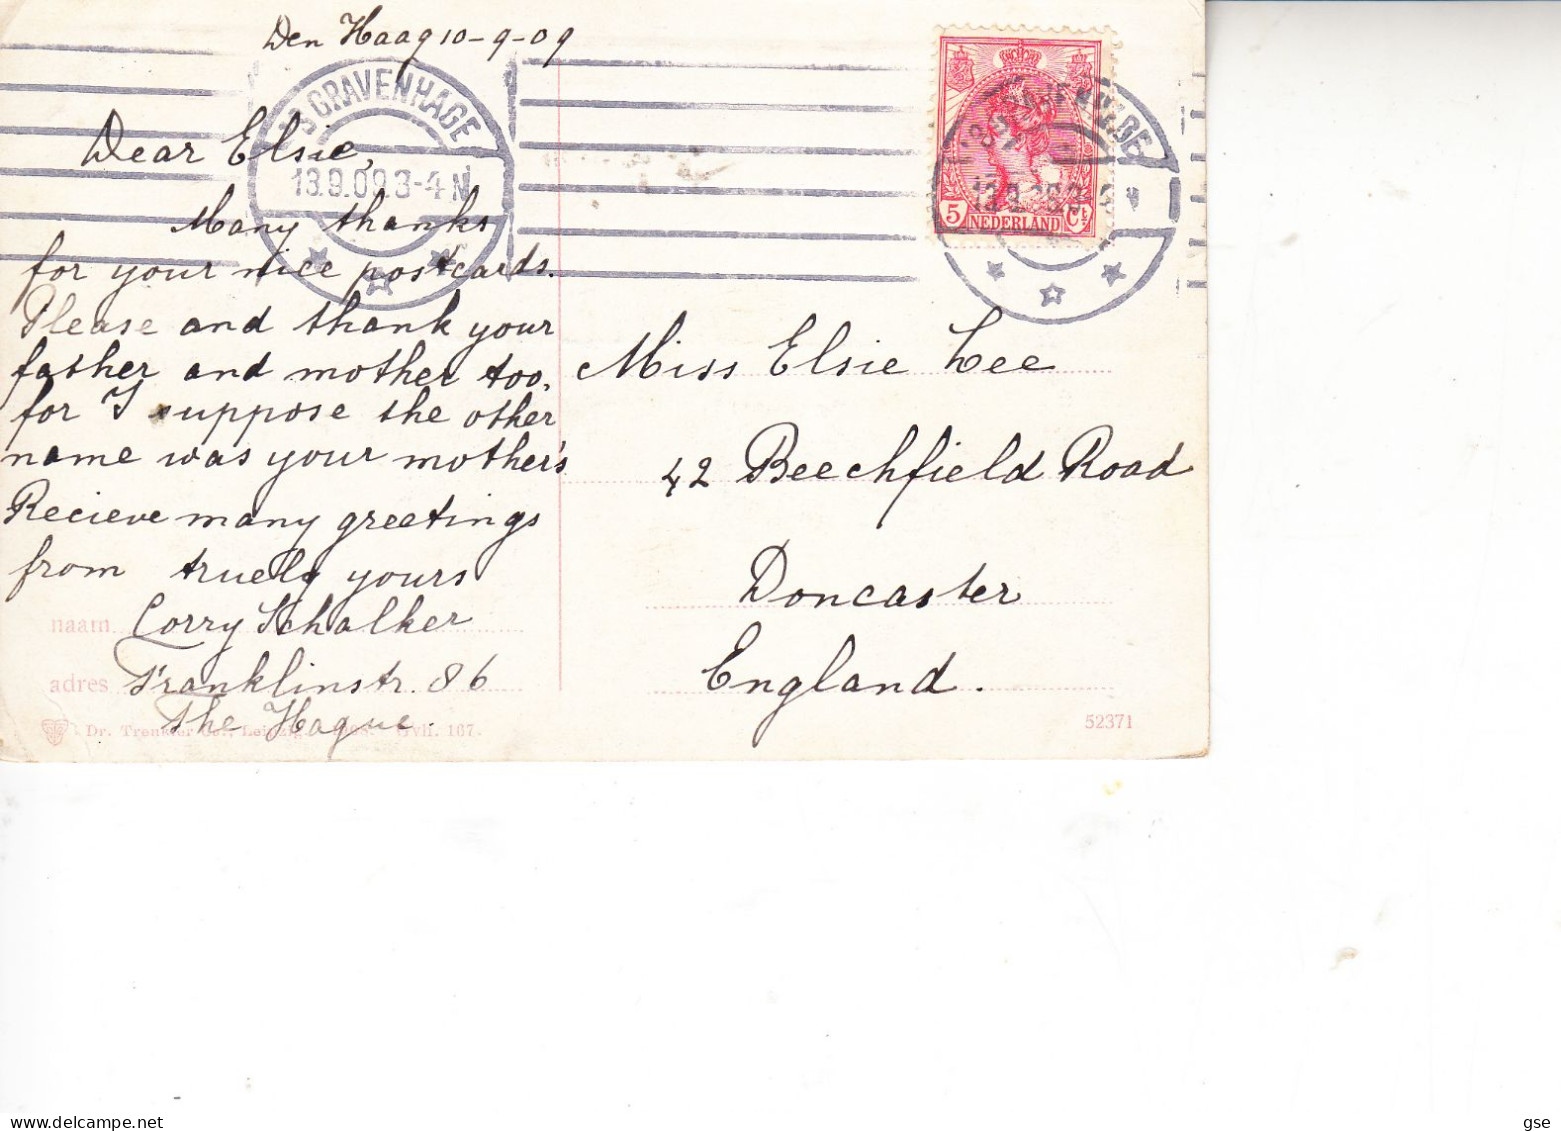 Den Haag 10-9-09
'S GRAVENHAGE
13.9.09 3-4 N
5 NEDERLAND Ct
Dear Elsie,
Many thanks
for your nice postcards.
Please and thank your
father and mother too,
for I suppose the other
name was your mother's
Recieve many greetings
from truely yours
naam Corry Schalker
adres Franklinstr. 86
The Hague.
Miss Elsie Lee
42 Beechfield Road
Doncaster
England.
Dr. Trenkler Co., Leipzig. 167.
52371
delcampe.net
gse